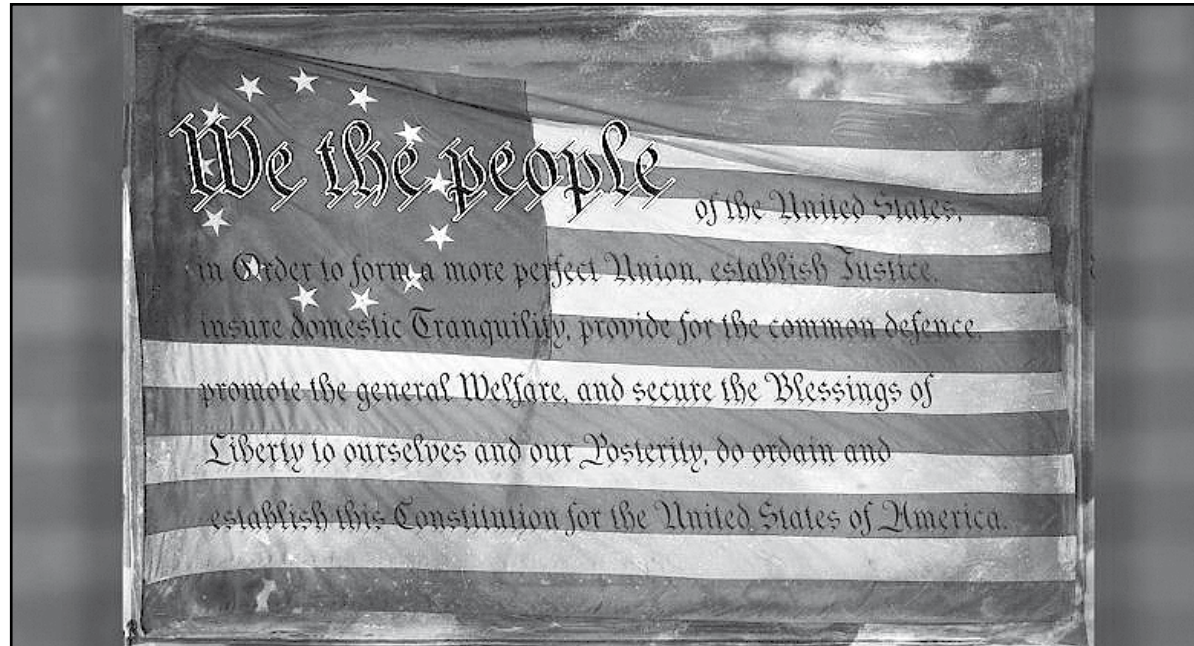 We the people
of the United States,
in Order to form a more perfect Union, establish Justice,
insure domestic Tranquility, provide for the common defence,
promote the general Welfare, and secure the Blessings of
Liberty to ourselves and our Posterity, do ordain and
establish this Constitution for the United States of America.